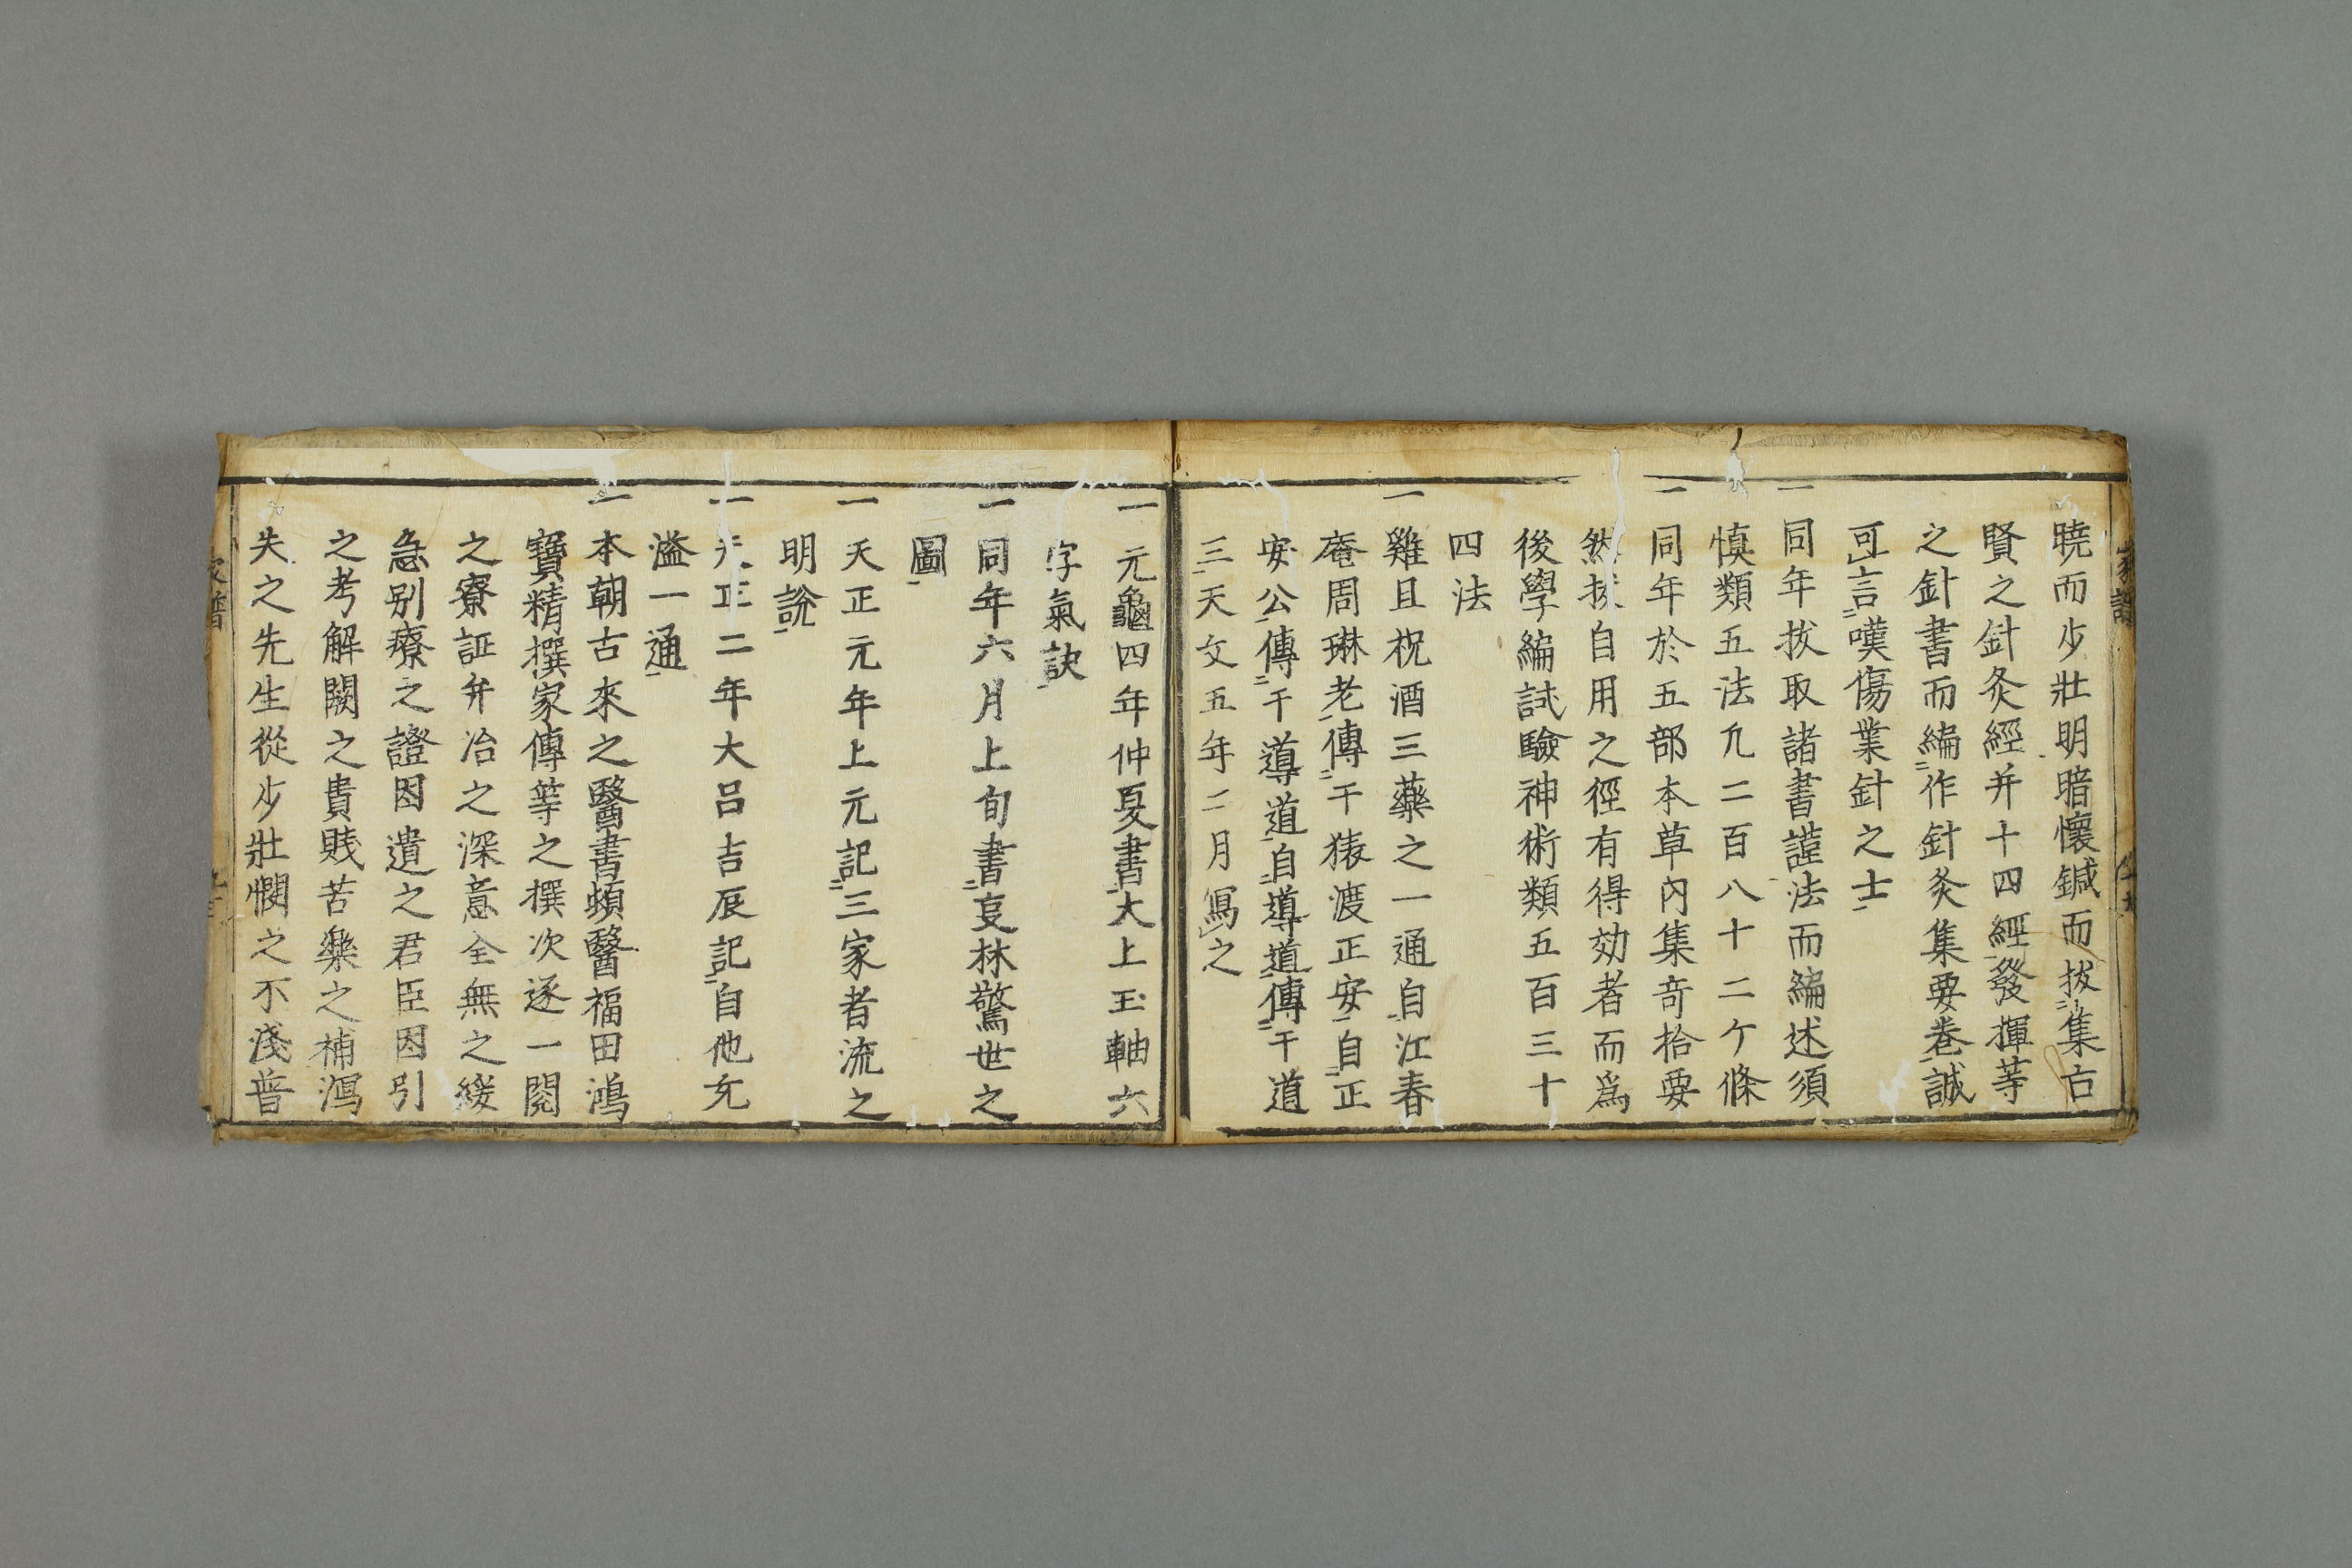 暁而少壯明暗懷鍼而拔集古
賢之針灸經并十四經發揮等
之針書而編作針灸集要卷誠
可言嘆傷業針之士
一同年拔取諸書謹法而編述須
慎類五法九二百八十二ケ條
一同年於五部本草內集奇拾要
然拔自用之徑有得効者而爲
後學編試驗神術類五百三十
四法
一雞且祝酒三藥之一通自江春
庵周琳老傳干猿渡正安自正
安公傳干導道自導道傳干道
三天文五年二月寫之
一元龜四年仲夏書大上玉軸六
字氣訣
一同年六月上旬書夏林驚世之
圖
一天正元年上元記三家者流之
明說
一天正二年大呂吉辰記自他充
溢一通
一本朝古來之醫書頓醫福田鴻
寶精撰家傳等之撰次逐一閱
之寮証弁治之深意全無之緩
急別療之證因遺之君臣因引
之考解闕之貴賤苦樂之補瀉
失之先生從少壯憫之不淺普
家譜